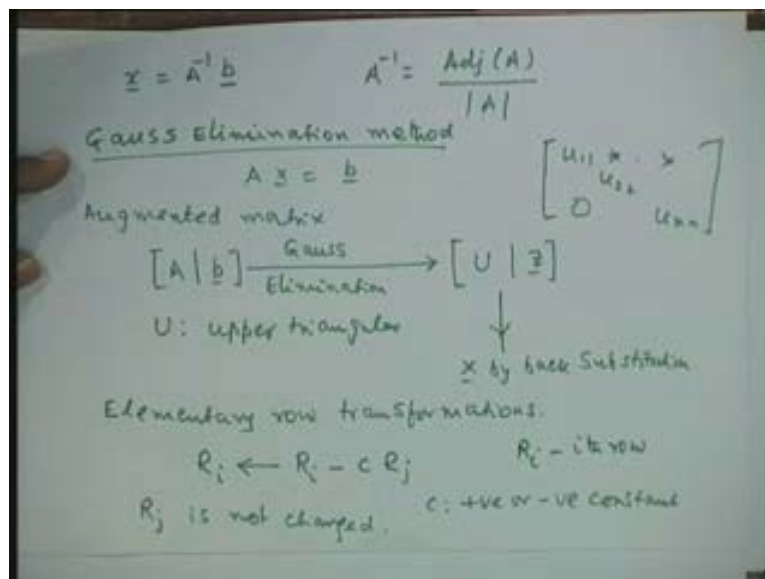 x = A⁻¹ b    A⁻¹ = Adj(A) / |A|
Gauss Elimination method
A x = b
[ u₁₁ * . *
u₂₂
0 uₙₙ ]
Augmented matrix
[A | b] Gauss Elimination → [U | z]
U: upper triangular
↓
x by back substitution
Elementary row transformations.
Rᵢ ← Rᵢ - c Rⱼ    Rᵢ - ith row
Rⱼ is not changed.    c: +ve or -ve constant